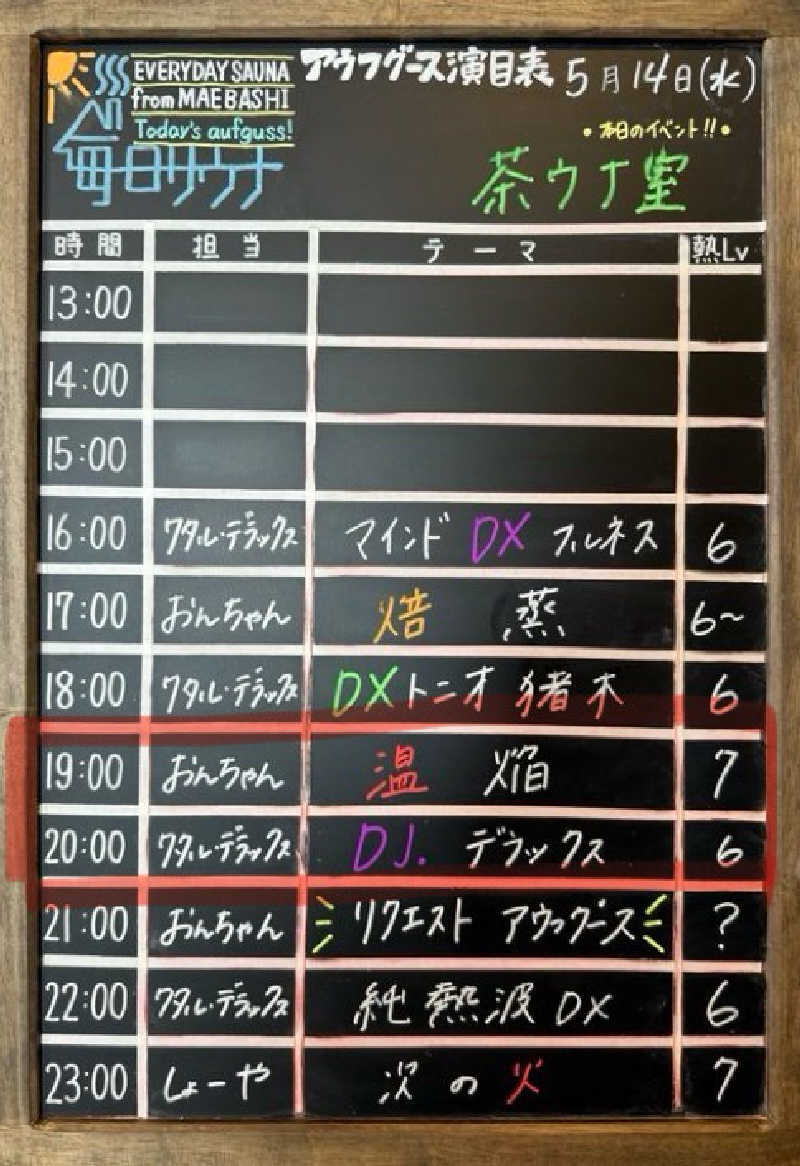 EVERYDAY SAUNA
from MAEBASHI
Today's aufguss!
毎日サウナ
アウフグース演目表 5月14日(水)
•本日のイベント!!•
茶ウナ室
時間 担当 テーマ 熱Lv
13:00
14:00
15:00
16:00 ワタル・デラックス マインド DX フルネス 6
17:00 おんちゃん 焙 蒸 6~
18:00 ワタル・デラックス DXトニオ 猪木 6
19:00 おんちゃん 温 焔 7
20:00 ワタル・デラックス DJ. デラックス 6
21:00 おんちゃん リクエスト アウフグース ?
22:00 ワタル・デラックス 純 熱 波 DX 6
23:00 しょーや 次 の 火 7